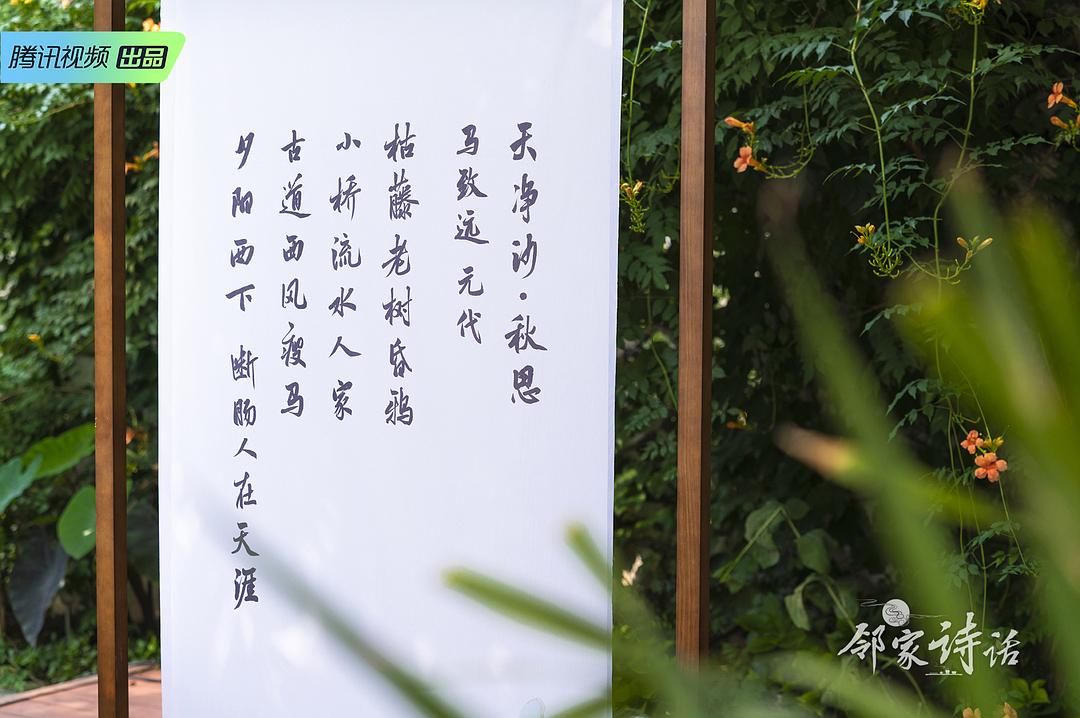 腾讯视频 出品
天净沙·秋思
马致远 元代
枯藤老树昏鸦
小桥流水人家
古道西风瘦马
夕阳西下 断肠人在天涯
邻家诗话